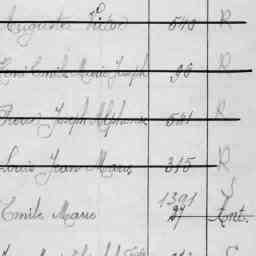 Auguste Victor 540 R
René Emile Marie Joseph 96 R
Pierre Joseph Alphonse 521 R
Louis Jean Marie 315 R
1391 S
Emile Marie 97 Ant.